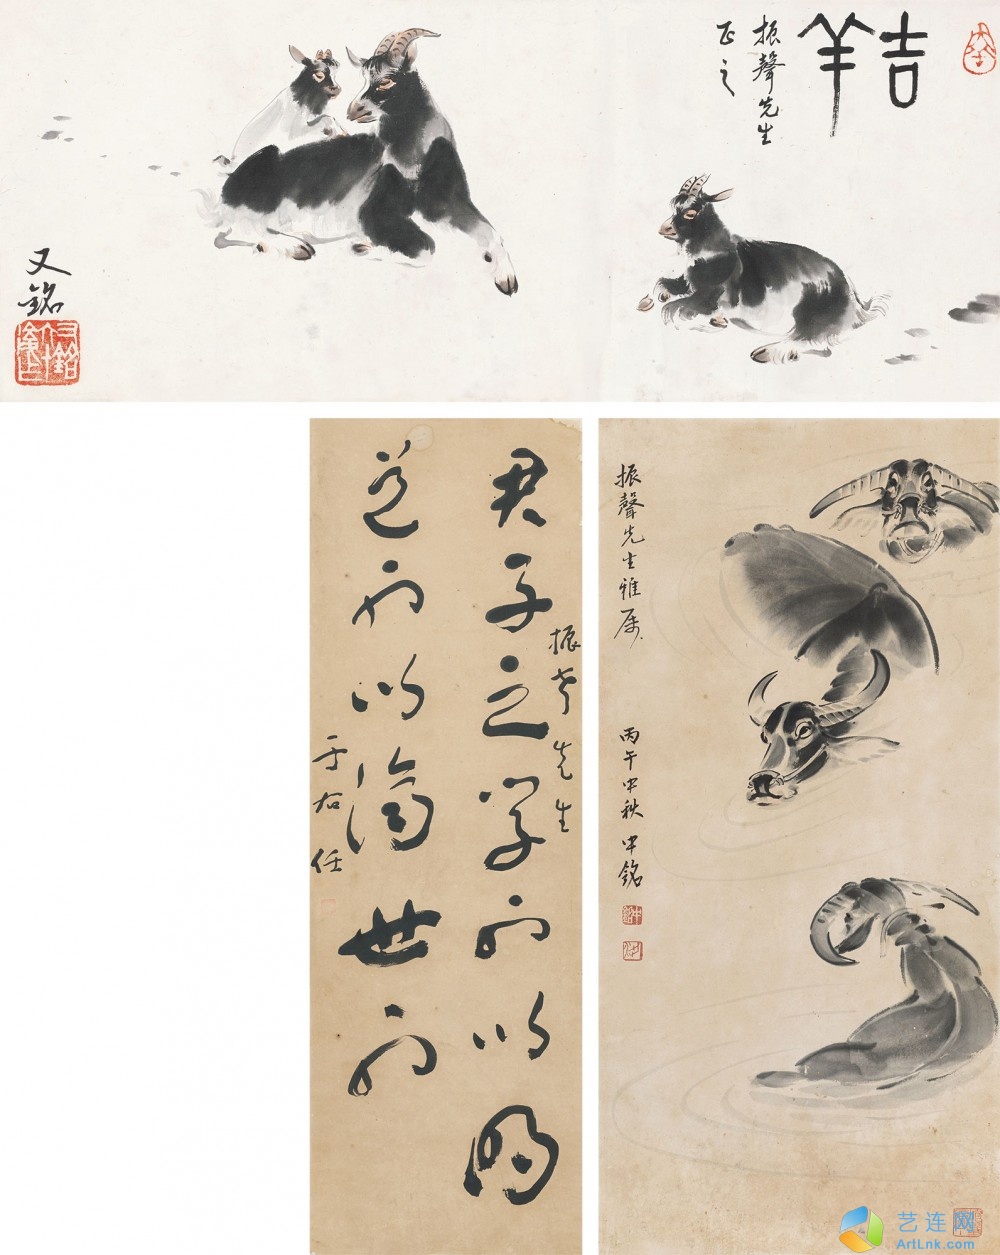 吉羊
振聲先生
正之
又銘
君子之學所以明
道所以濟世
振聲先生
于右任
振聲先生雅屬
丙午中秋 中銘
艺连网
ArtLnk.com